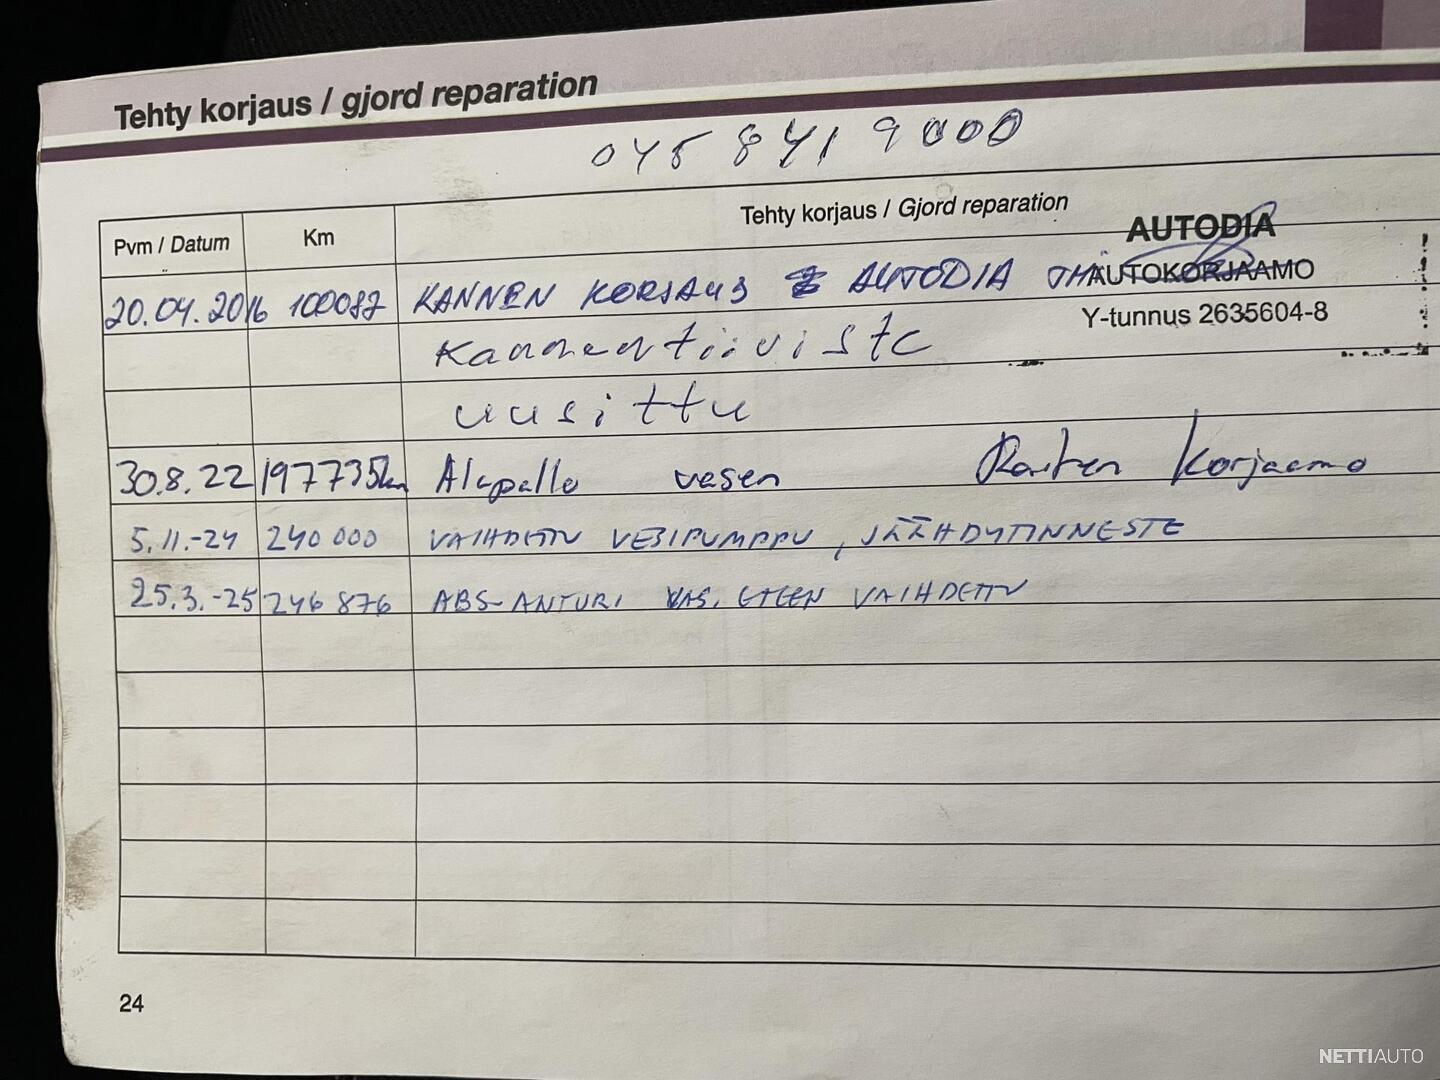 Tehty korjaus / gjord reparation
045 841 9000
Tehty korjaus / Gjord reparation
Pvm / Datum Km
AUTODIA
AUTOKORJAAMO
Y-tunnus 2635604-8
20.04.2016 100087 KANNEN KORJAUS AUTODIA
Kannentiiviste
uusittu
30.8.22 197735km Alapallo vasen Korjaamo
5.11.-24 240 000 VAIHDETTU VESIPUMPPU, JÄÄHDYTINNESTE
25.3.-25 246 876 ABS-ANTURI VAS. ETEEN VAIHDETTU
24
NETTIAUTO